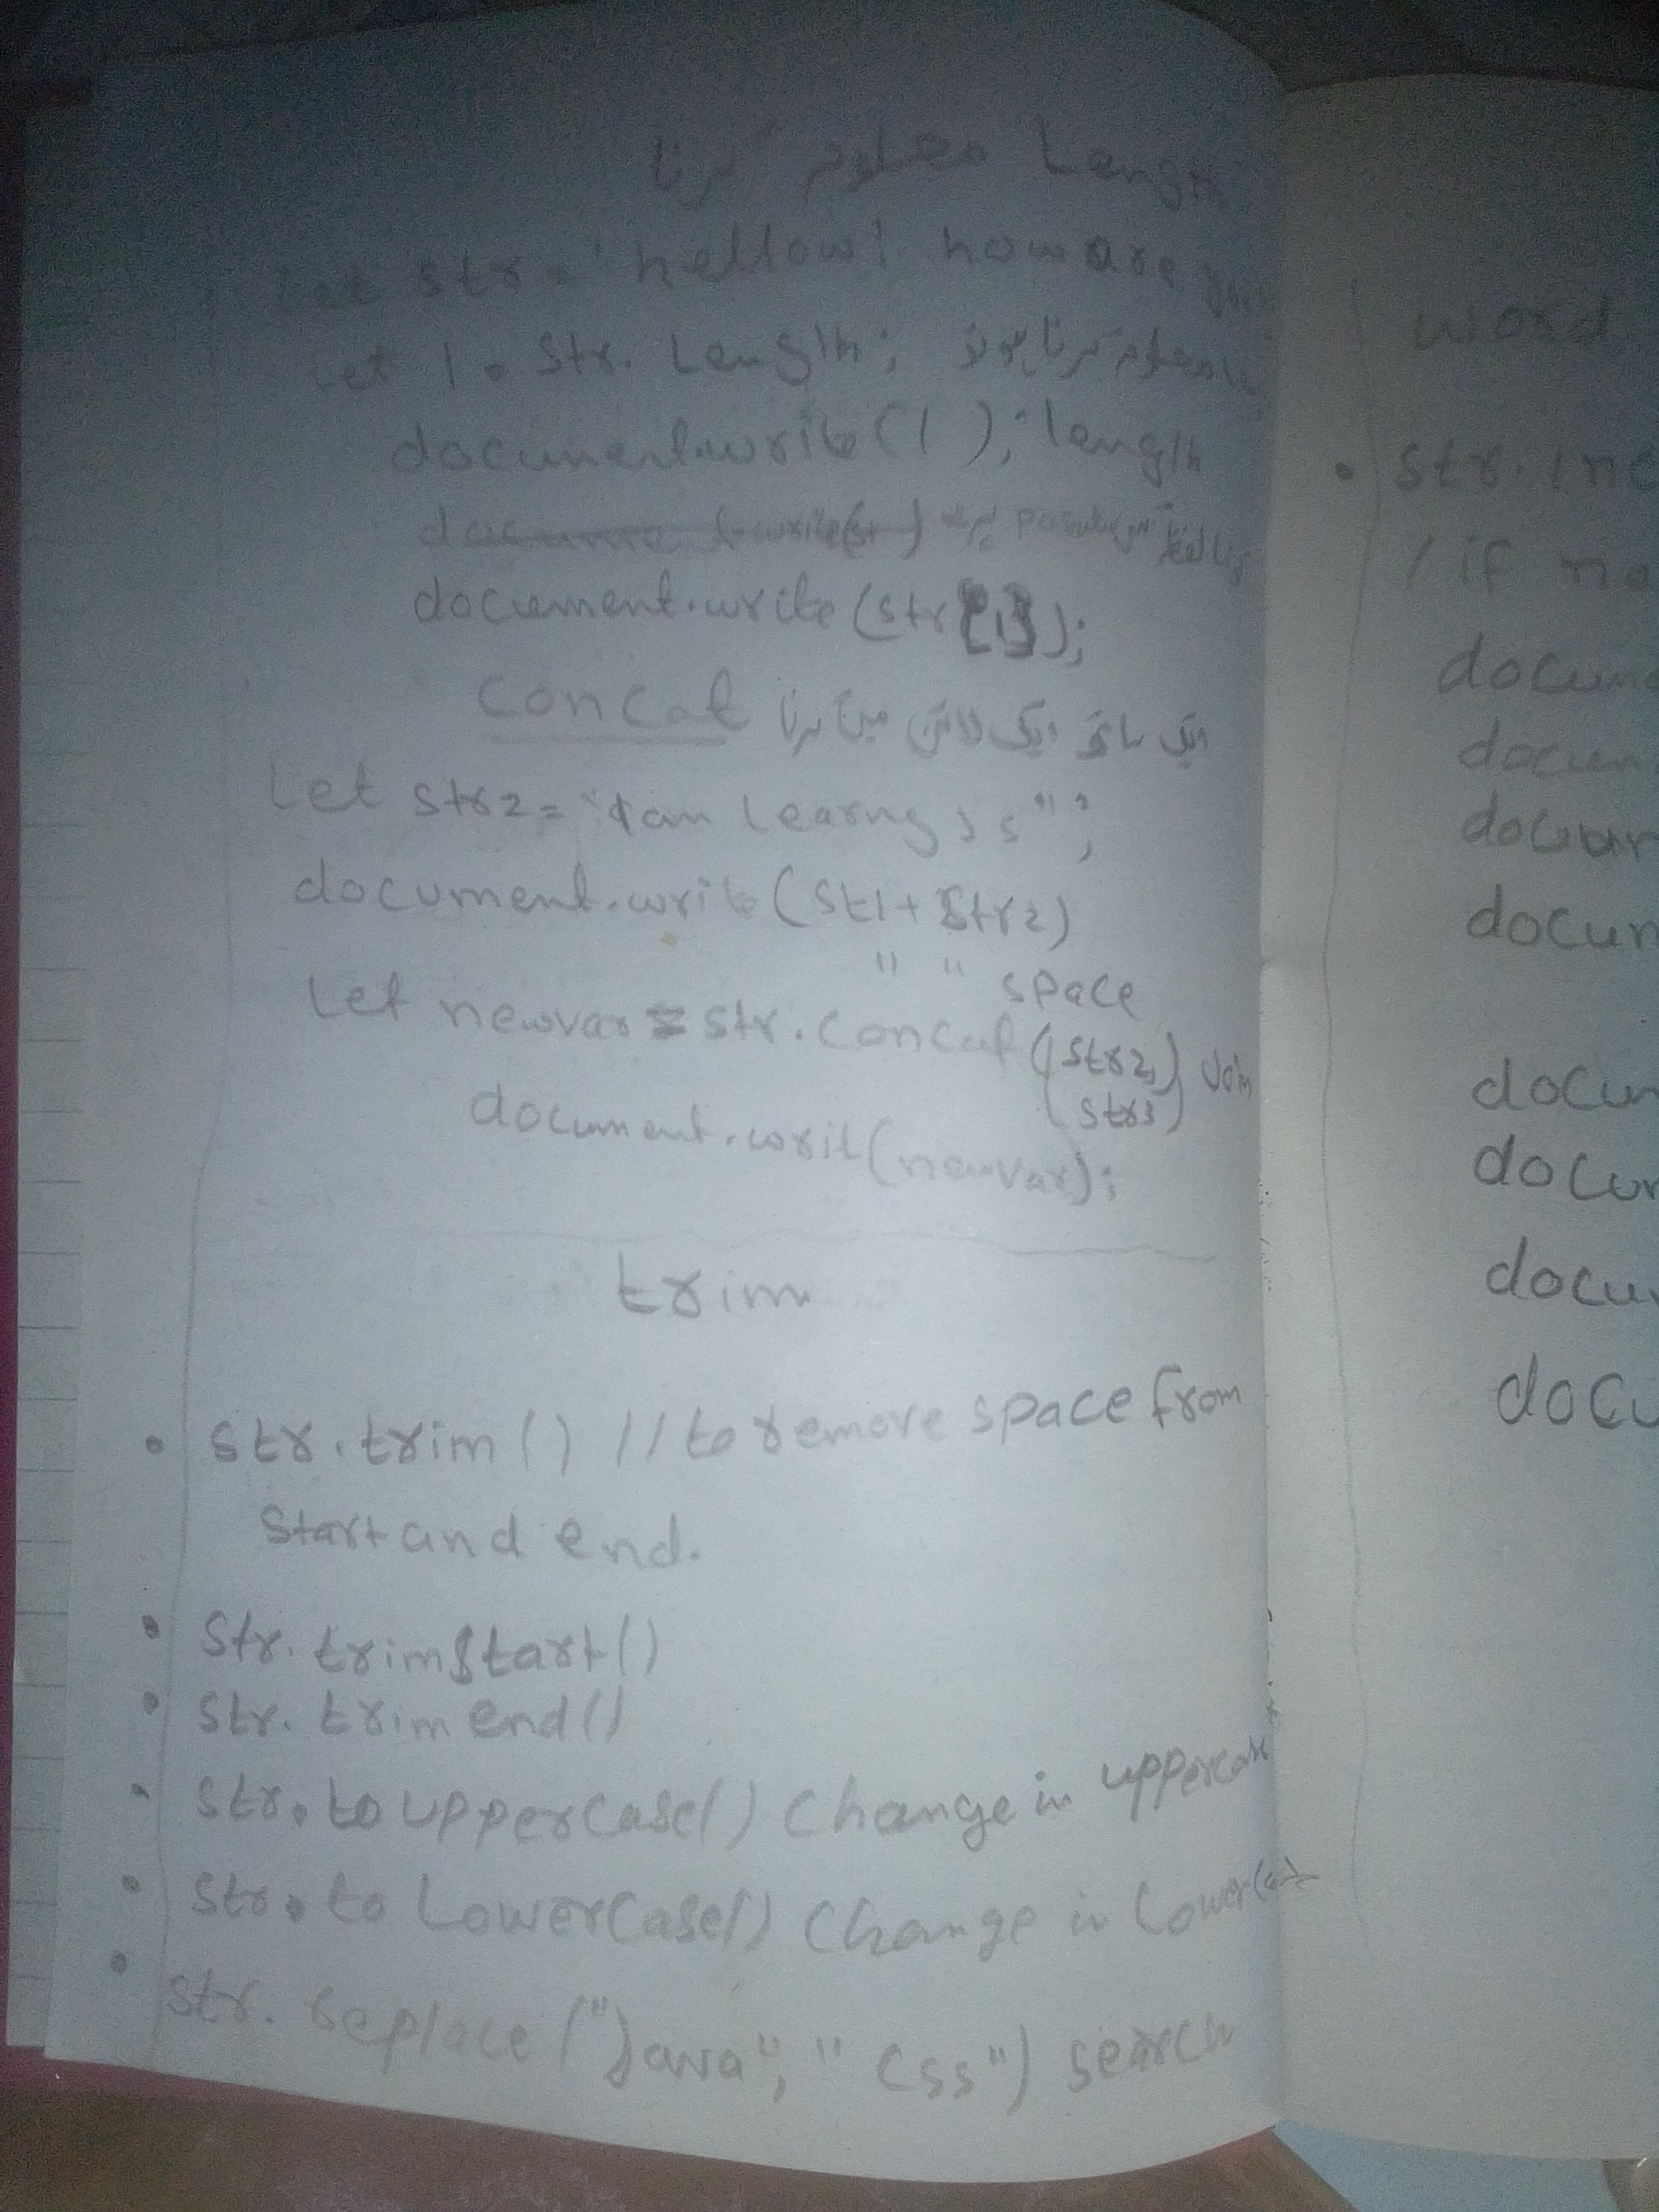 Length معلوم کرنا
Let str = 'hellow! how are you
Let l = str. Length; معلوم کرنا ہو تو
document.write(l); length
document.write(str[1]);
Concat ایک ساتھ ایک لائن میں کرنا
Let str2 = "I am Learng Js";
document.write(St1+Str2)
" " space
Let newvar = str.Concat (str2,) Join
(str3)
document.writ(newvar);
trim
• str.trim() // to remove space from
Start and end.
• Str.trimStart()
• Str.trimend()
• Str.toupperCase() Change in uppercase
• Str.toLowerCase() Change in Lowercase
• str.replace("Java", "Css") search
word
• str.inc
/ if no
docum
docum
docum
docum
docum
docum
docu
docu